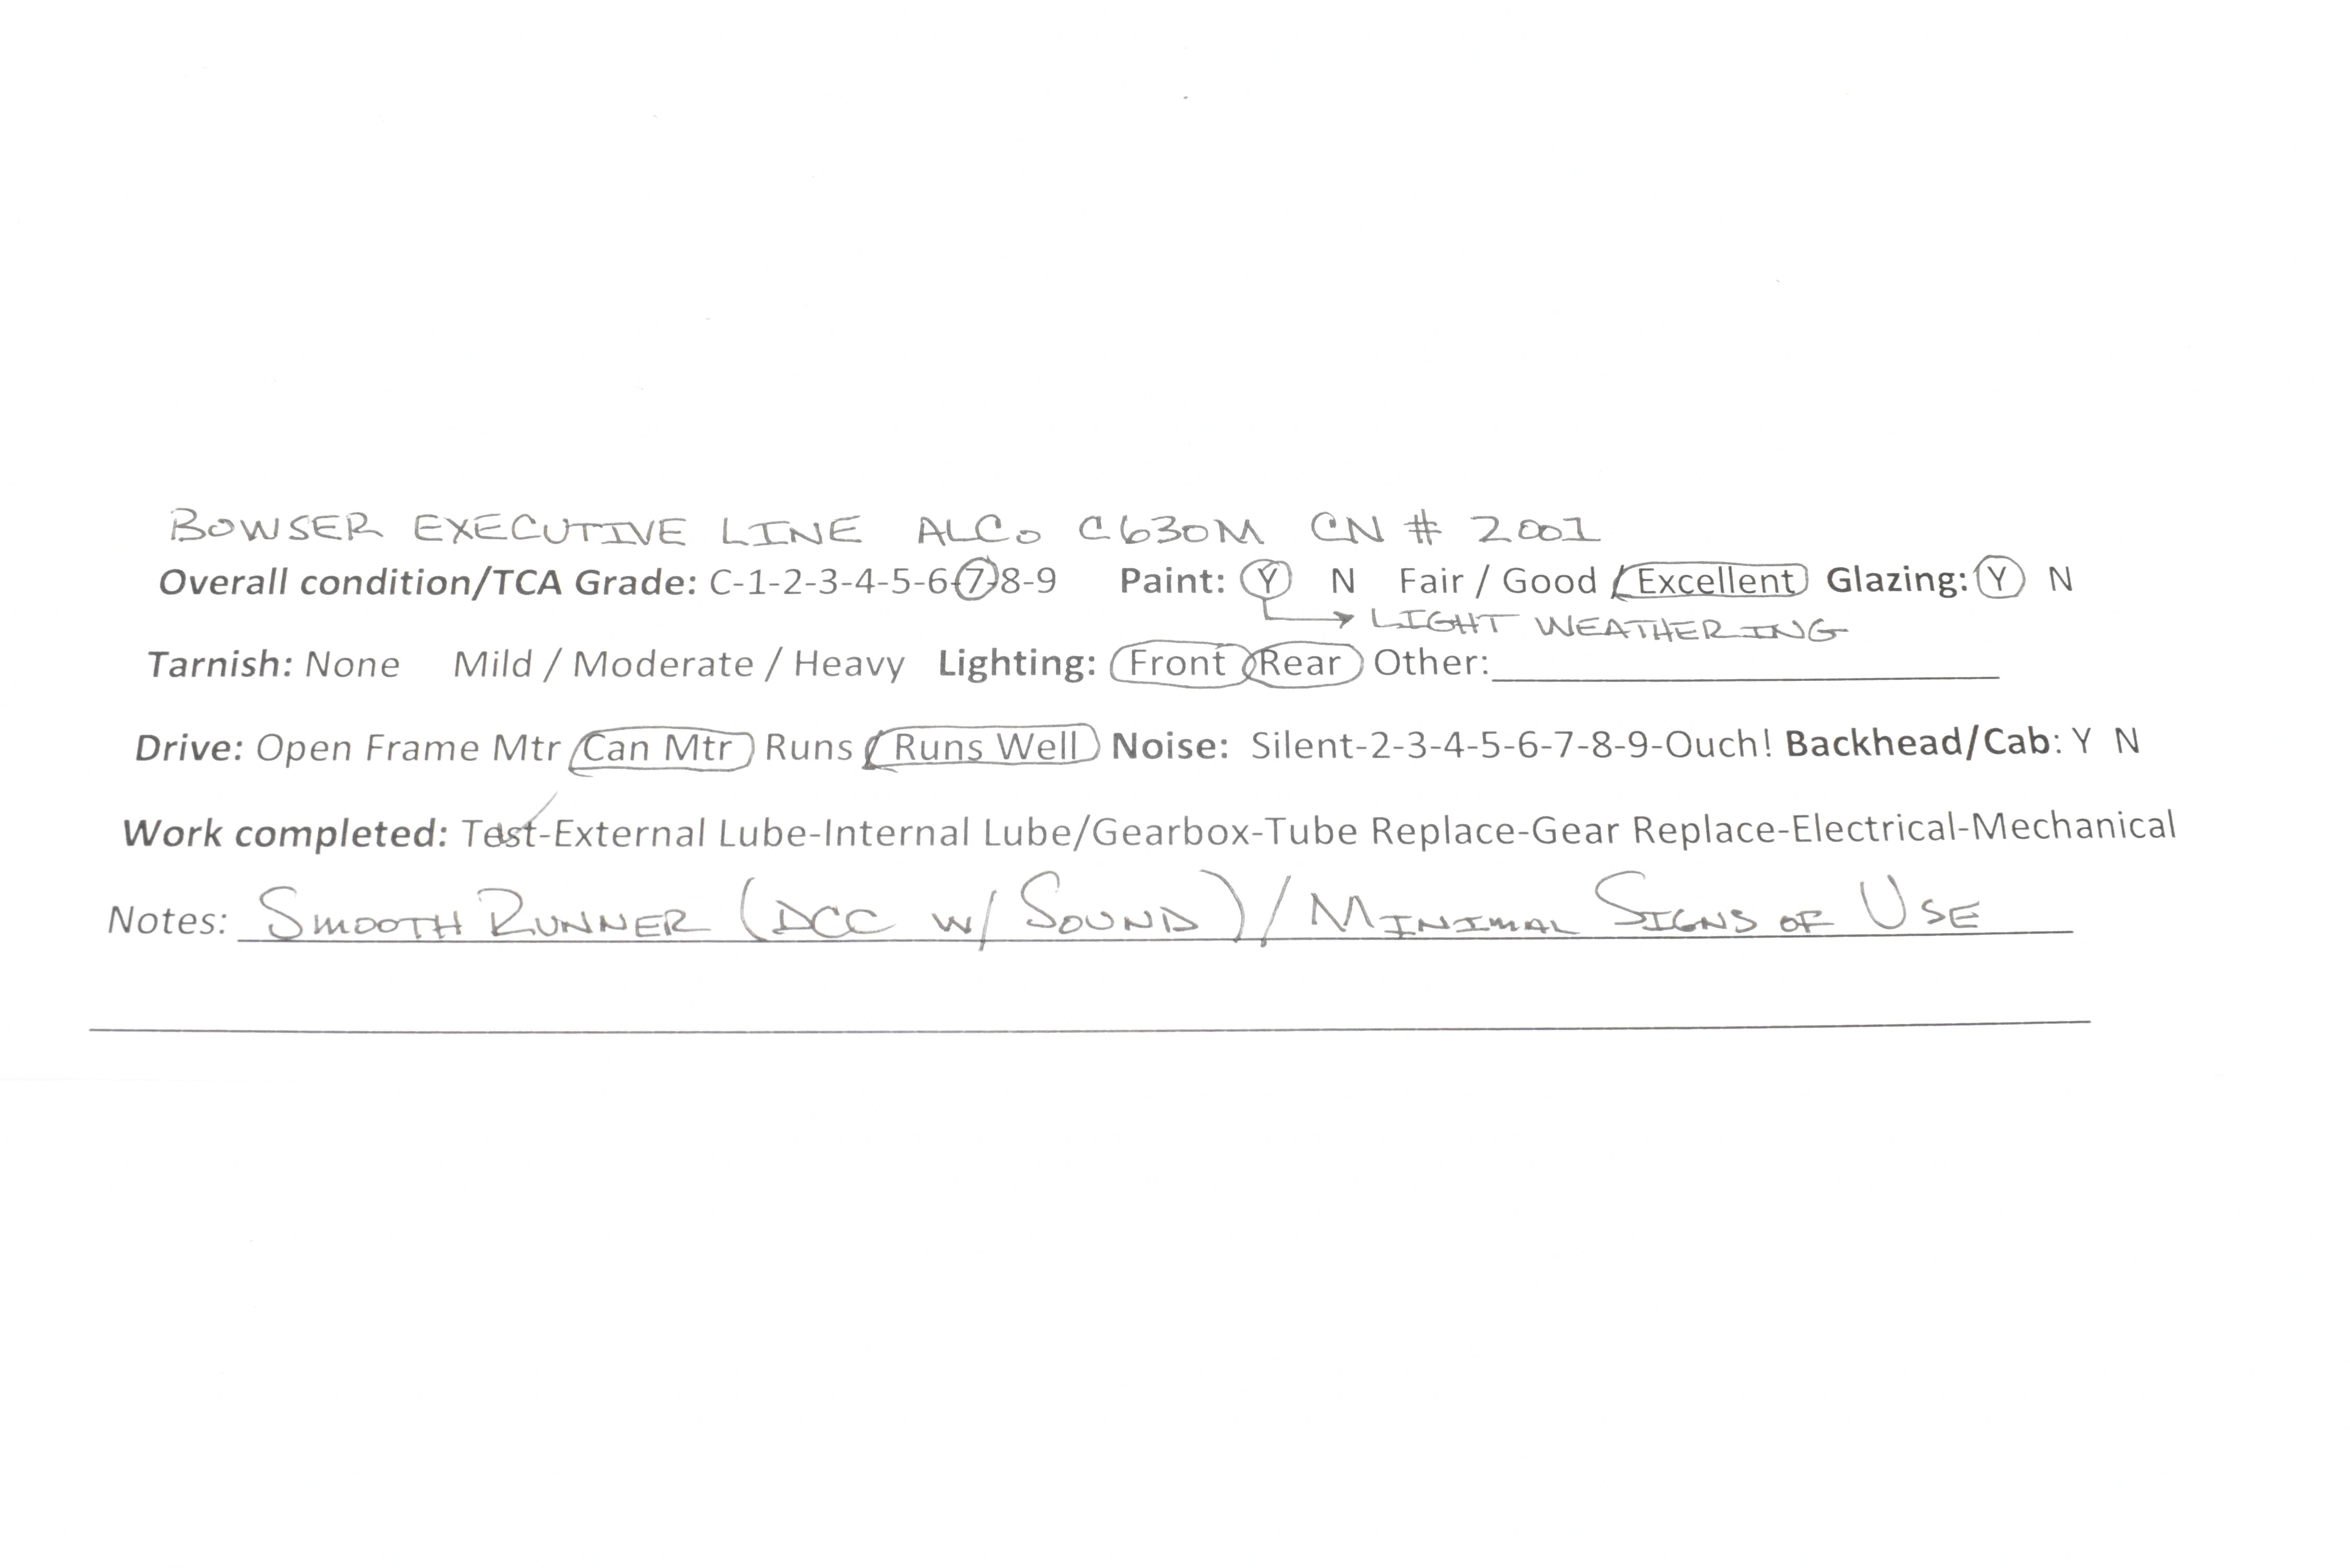 BOWSER EXECUTIVE LINE ALCo C630M CN # 2001
Overall condition/TCA Grade: C-1-2-3-4-5-6-7-8-9 Paint: Y N Fair / Good / Excellent Glazing: Y N
LIGHT WEATHERING
Tarnish: None Mild / Moderate / Heavy Lighting: Front Rear Other:
Drive: Open Frame Mtr Can Mtr Runs / Runs Well Noise: Silent-2-3-4-5-6-7-8-9-Ouch! Backhead/Cab: Y N
Work completed: Test-External Lube-Internal Lube/Gearbox-Tube Replace-Gear Replace-Electrical-Mechanical
Notes: SMOOTH RUNNER (DCC W/ SOUND) / MINIMAL SIGNS OF USE